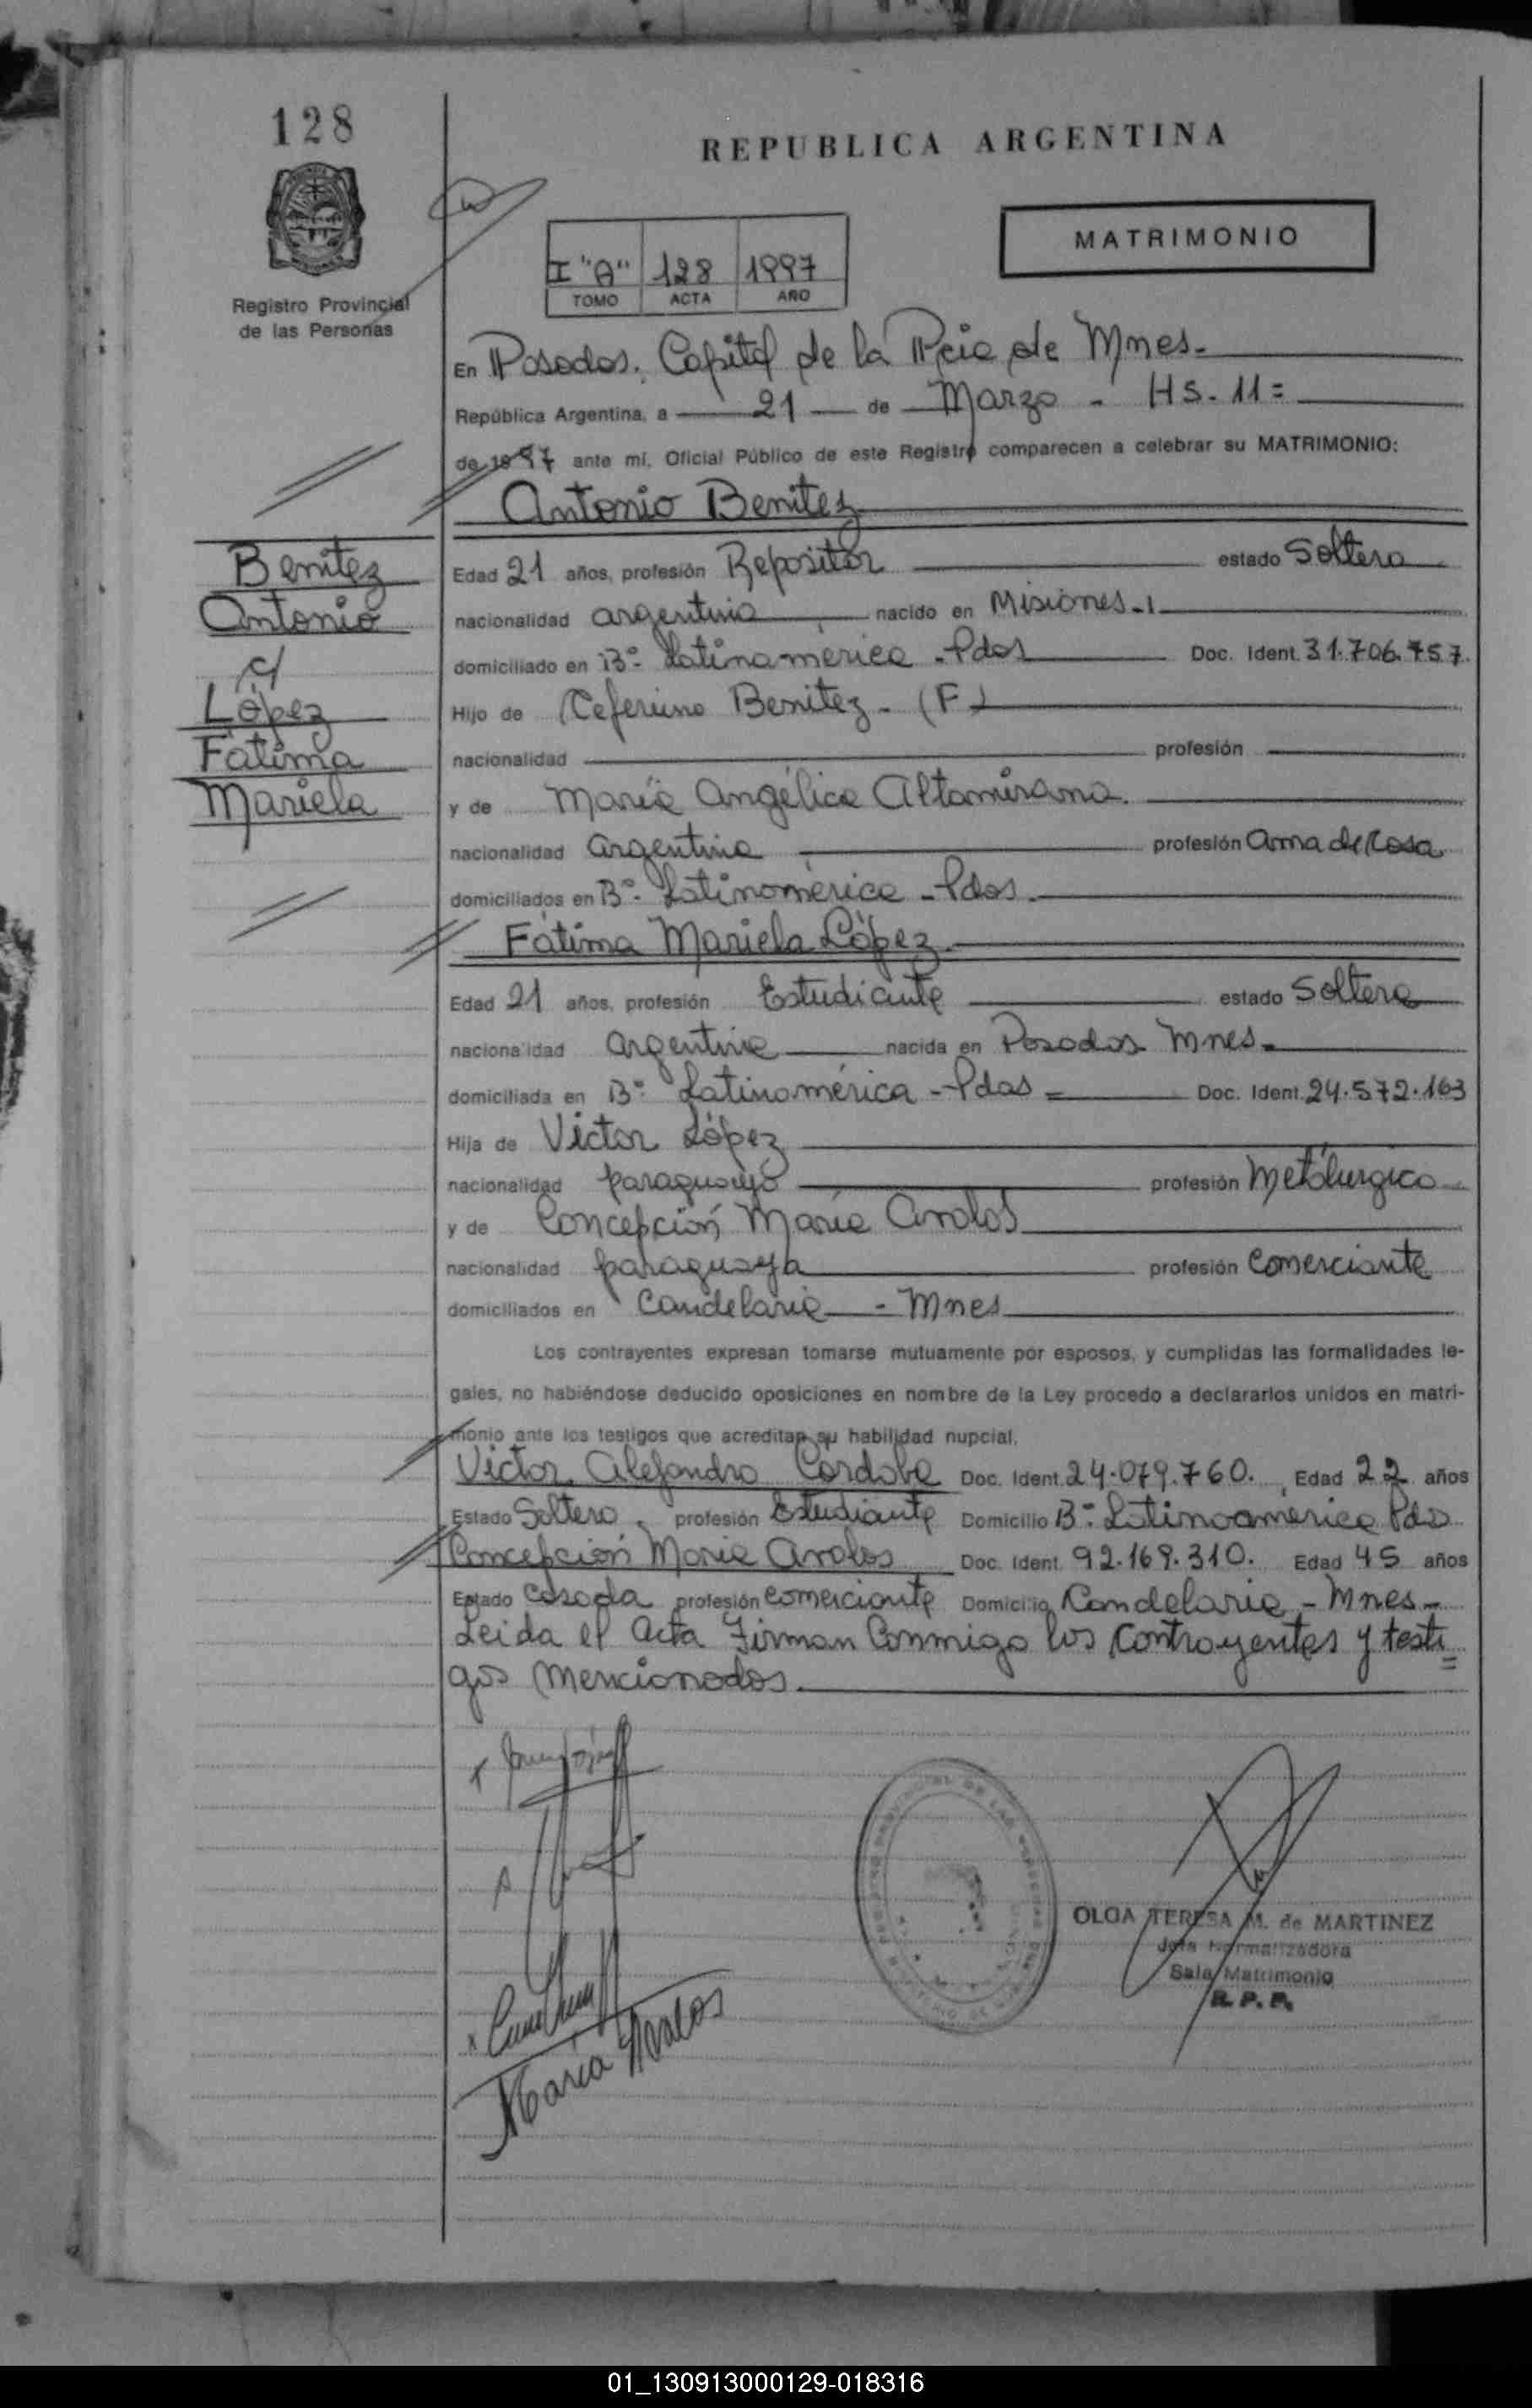 128
REPUBLICA ARGENTINA
MATRIMONIO
I "A" 128 1997
TOMO ACTA AÑO
Registro Provincial
de las Personas
En Posadas, Capital de la Pcia de Mnes.
República Argentina, a 21 de Marzo - Hs. 11=
de 1997 ante mí, Oficial Público de este Registro comparecen a celebrar su MATRIMONIO:
Antonio Benitez
Benitez
Antonio
c/
López
Fátima
Mariela
Edad 21 años, profesión Repositor estado Soltero
nacionalidad argentino nacido en Misiones.
domiciliado en B° Latinamérica - Pdas Doc. Ident. 31.706.757.
Hijo de Ceferino Benitez - (F)
nacionalidad profesión
y de María Angélica Altamirano.
nacionalidad argentina profesión Ama de Casa
domiciliados en B° Latinomérica - Pdas.
Fátima Mariela López.
Edad 21 años, profesión Estudiante estado Soltera
nacionalidad argentina nacida en Posadas Mnes.
domiciliada en B° Latinomérica - Pdas = Doc. Ident. 24.572.163
Hija de Víctor López
nacionalidad paraguayo profesión Metálurgico
y de Concepción María Avalos
nacionalidad paraguaya profesión Comerciante
domiciliados en Candelaria - Mnes
Los contrayentes expresan tomarse mutuamente por esposos, y cumplidas las formalidades le-
gales, no habiéndose deducido oposiciones en nombre de la Ley procedo a declararlos unidos en matri-
monio ante los testigos que acreditan su habilidad nupcial.
Victor Alejandro Córdoba Doc. Ident. 24.079.760. Edad 22 años
Estado Soltero. profesión Estudiante Domicilio B° Latinoamerica Pdas
Concepción María Avalos Doc. Ident. 92.169.310. Edad 45 años
Estado Casada profesión comerciante Domicilio Candelaria - Mnes -
Leida el Acta Firman Conmigo los Contrayentes y testi
gos Mencionados.
María Avalos
OLGA TERESA M. de MARTINEZ
Jefa Normatizadora
Sala Matrimonio
R. P. P.
01_130913000129-018316